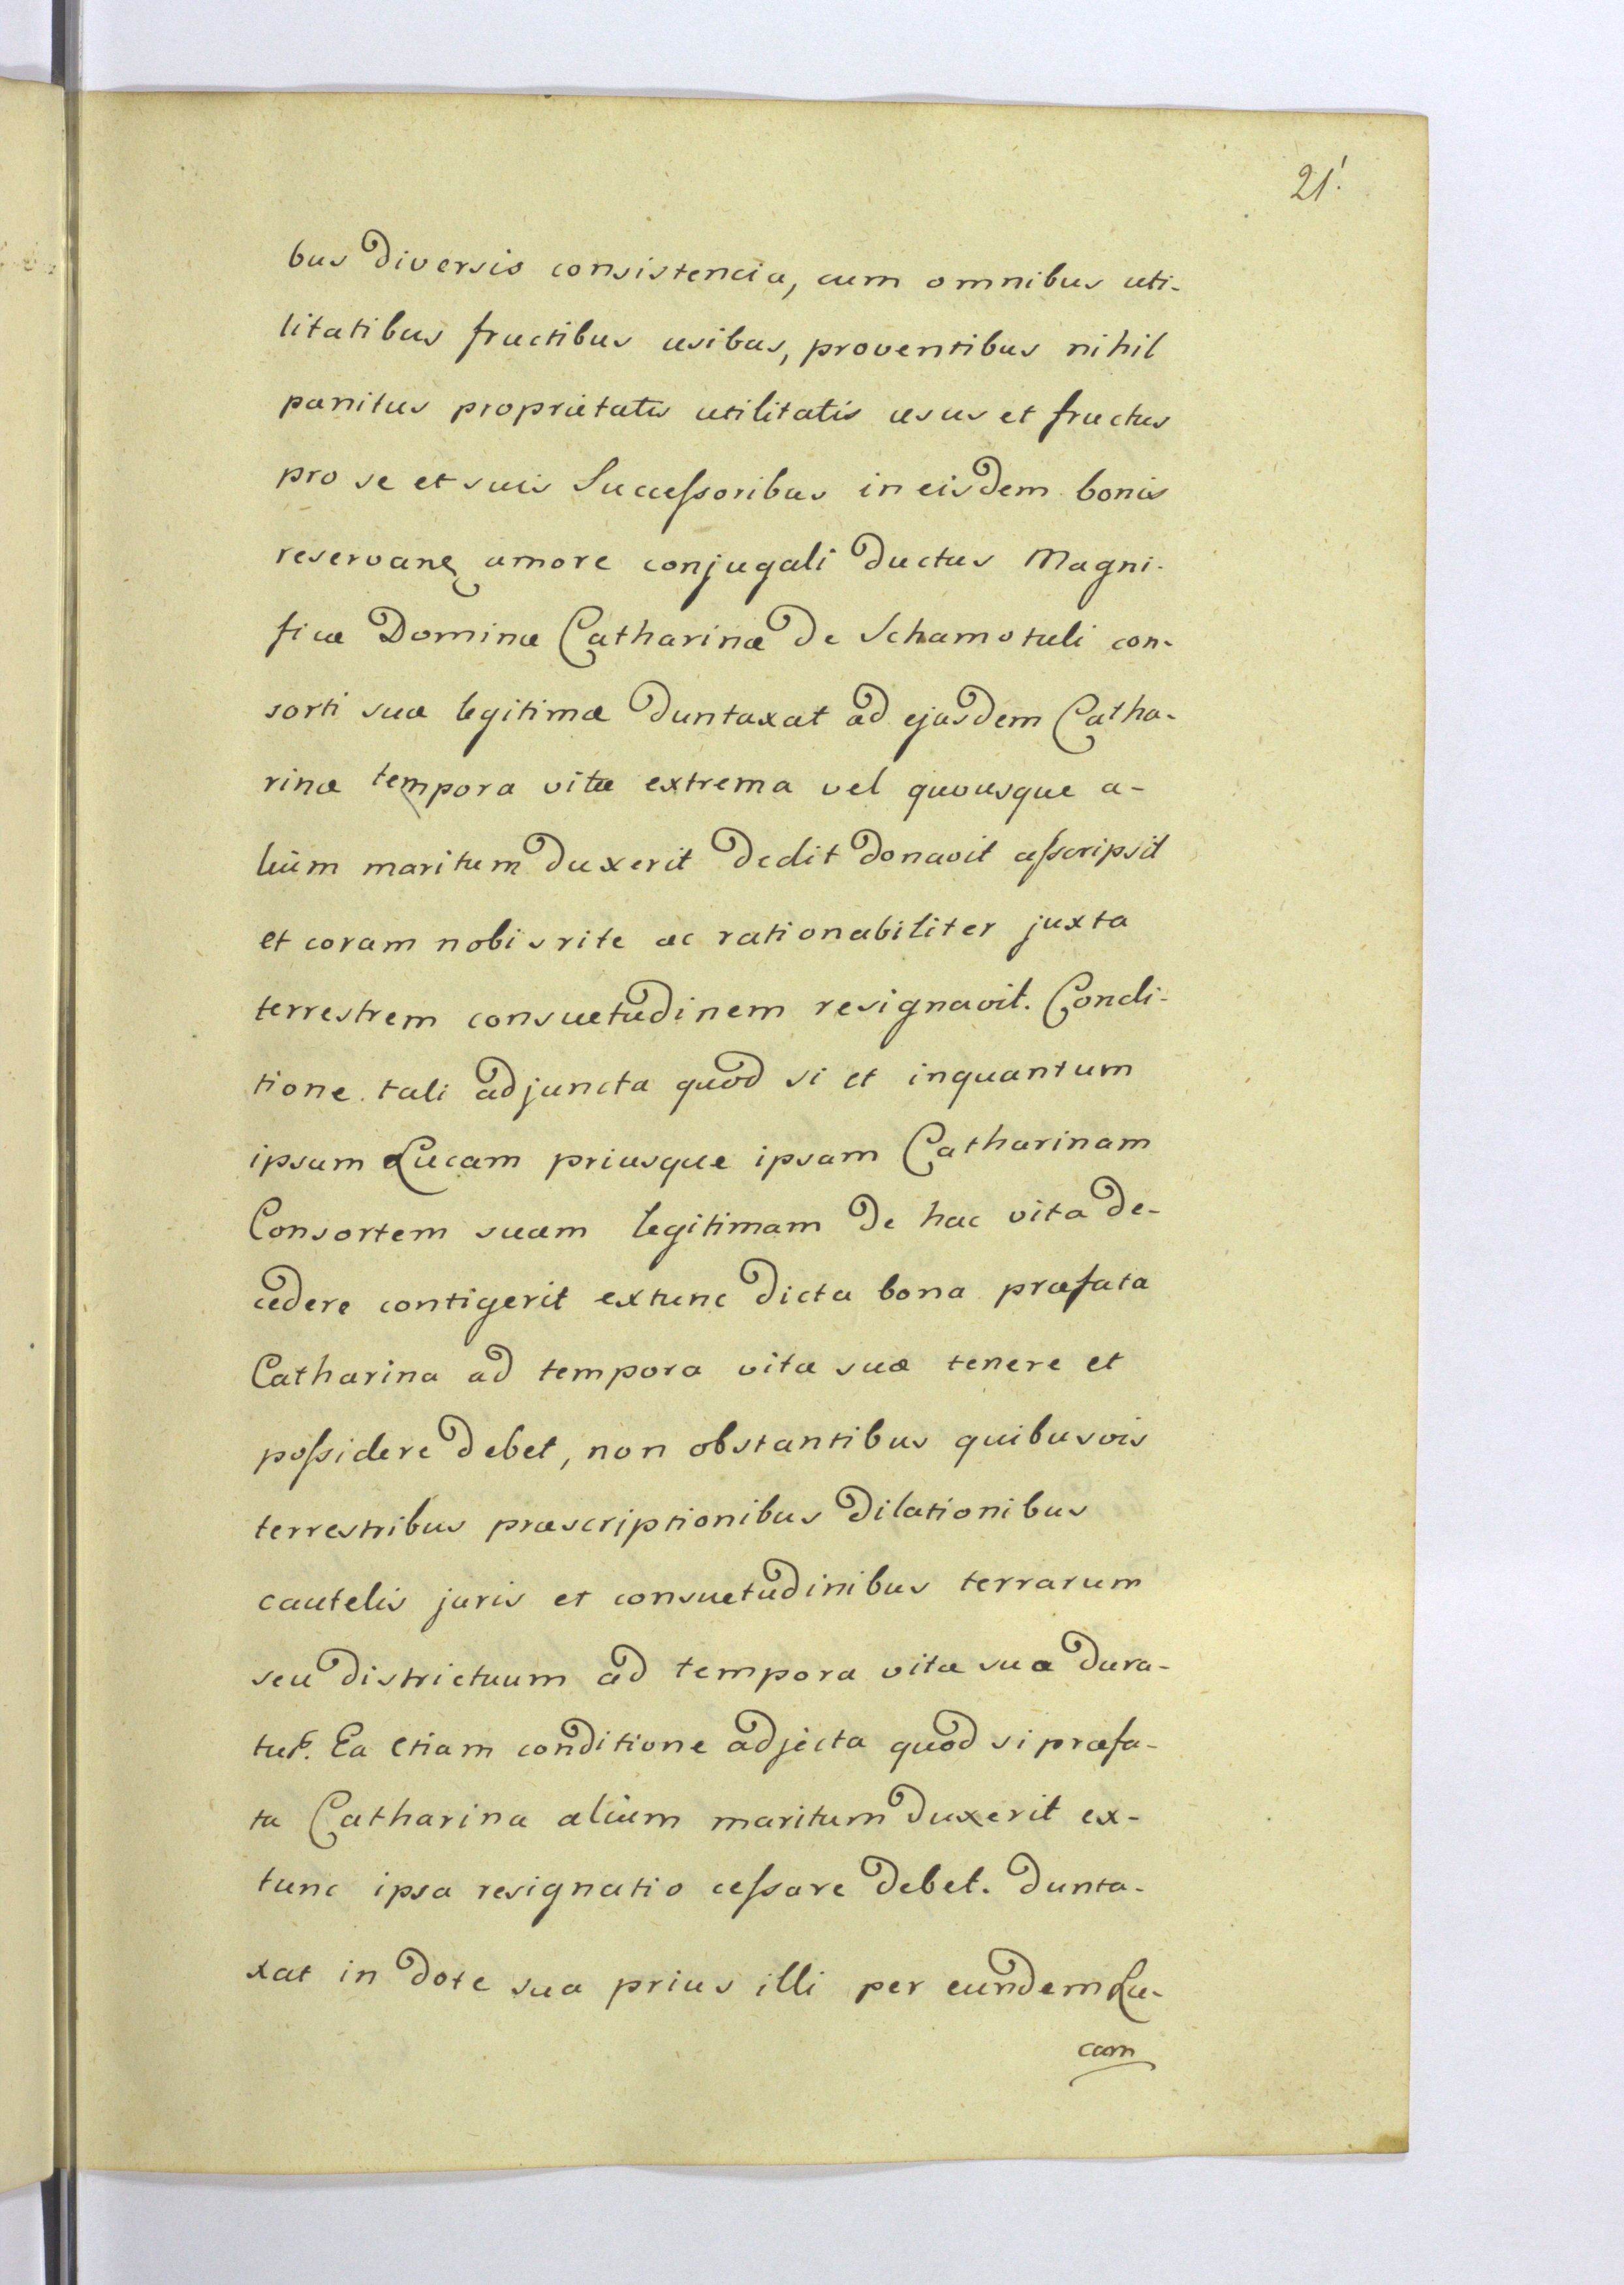 21!
bus diversis consistencia, cum omnibus uti-
litatibus fructibus usibus, proventibus nihil
panitus proprietatis utilitatis usus et fructus
pro se et suis Successoribus in eisdem bonis
reservans amore conjugali ductus Magni-
ficæ Dominæ Catharinæ de Schamotuli con-
sorti suæ legitimæ duntaxat ad ejusdem Catha-
rinæ tempora vitæ extrema vel quousque a-
lium maritum duxerit dedit donavit asscripsit
et coram nobis rite ac rationabiliter juxta
terrestrem consuetudinem resignavit. Condi-
tione tali adjuncta quod si et inquantum
ipsum Lucam priusque ipsam Catharinam
Consortem suam legitimam de hac vita de-
cedere contigerit extunc dicta bona præfata
Catharina ad tempora vitæ suæ tenere et
possidere debet, non obstantibus quibusvis
terrestribus præscriptionibus dilationibus
cautelis juris et consuetudinibus terrarum
seu districtuum ad tempora vitæ suæ dura-
tur. Ea etiam conditione adjecta quod si præfa-
ta Catharina alium maritum duxerit ex-
tunc ipsa resignatio cessare debet. Dunta-
xat in dote sua prius illi per eundem Lu-
cam